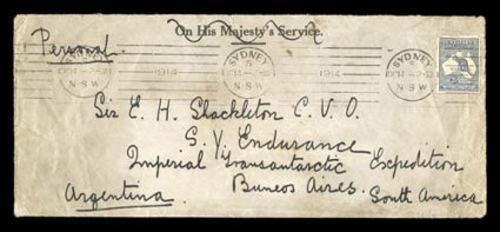 On His Majesty's Service.
Personal.
SYDNEY
N.S.W
1914
SYDNEY
N.S.W
1914
SYDNEY
N.S.W
Sir E. H. Shackleton C.V.O.
S.Y. Endurance
Imperial Transantarctic Expedition
Buneos Aires.
Argentina.
South America